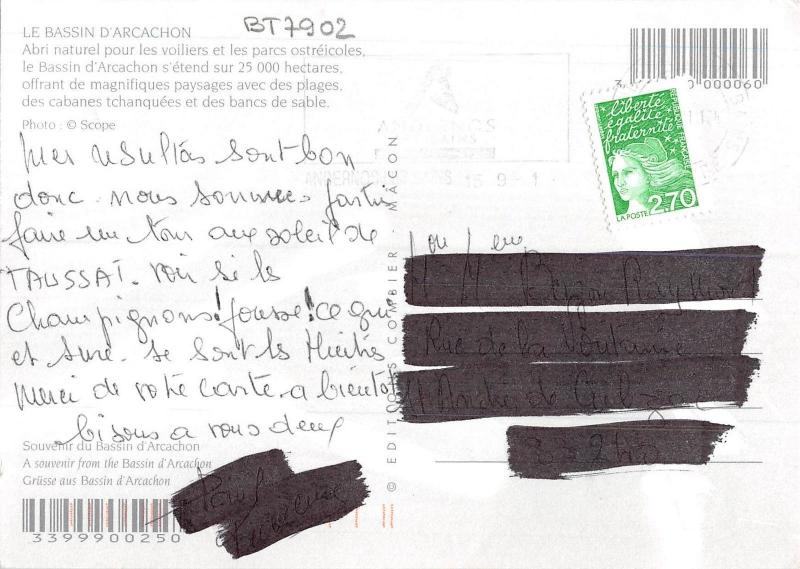 BT7902
LE BASSIN D'ARCACHON
Abri naturel pour les voiliers et les parcs ostréicoles,
le Bassin d'Arcachon s'étend sur 25 000 hectares,
offrant de magnifiques paysages avec des plages,
des cabanes tchanquées et des bancs de sable.
Photo : © Scope
Mes résultas sont bon
donc nous sommes partis
faire un tour aux soleil de
TAUSSAT. voir si les
Champignons! pousse! ce qui
et sure. se sont les Huitres
Merci de votre carte. a bientôt
bisous a vous deux
Souvenir du Bassin d'Arcachon
A souvenir from the Bassin d'Arcachon
Grüsse aus Bassin d'Arcachon
3399900250
© EDITIONS COMBIER - MACON
3 0 000060
liberté
égalité
fraternité
REPUBLIQUE FRANÇAISE
2,70
LA POSTE
15 9 - 1